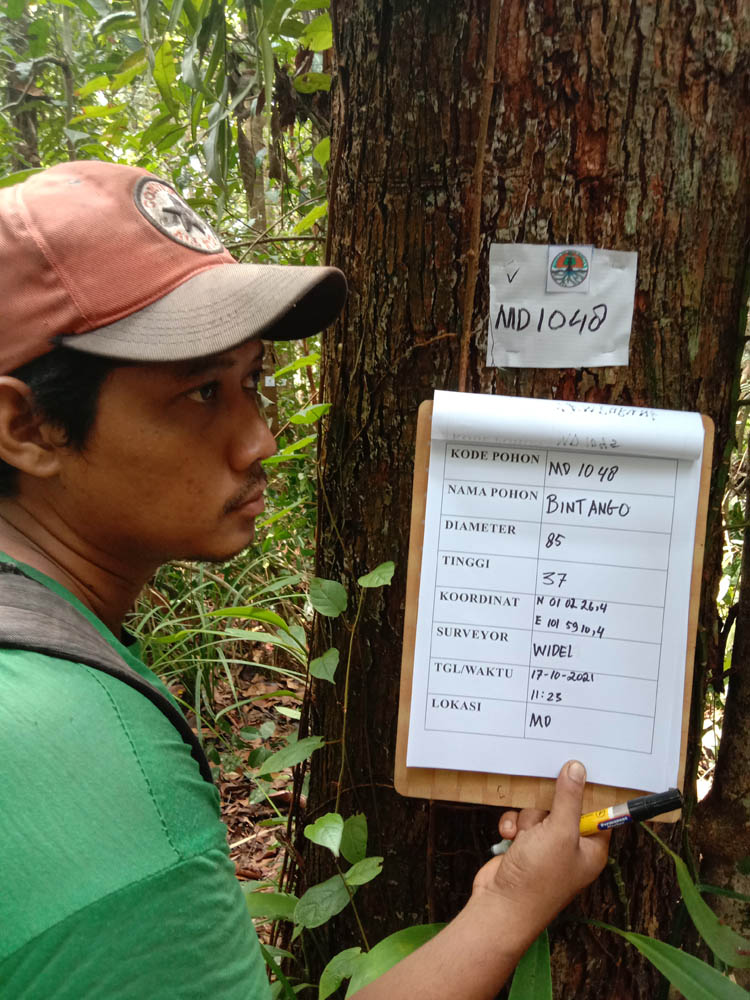 MD1048
KODE POHON MD 1048
NAMA POHON BINTANGO
DIAMETER 85
TINGGI 37
KOORDINAT N 01 02 26,4
E 101 59 10,4
SURVEYOR WIDEL
TGL/WAKTU 17-10-2021
11:23
LOKASI MD